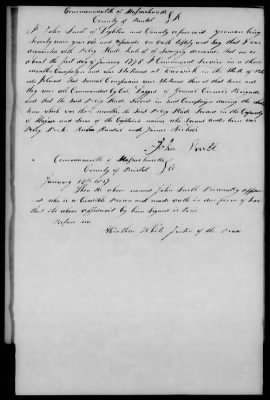 Commonwealth of Massachusetts
County of Bristol } SS
I John Smith of Dighton and County aforesaid yeoman being
Seventy seven years old and upwards on Oath testify and Say that I was
acquainted with Percy Slade late of Swanzey deceased, that on or
about the first day of January 1778 I Commenced Service in a three
months Campaign and was Stationed at Warwick in the State of Rhode
Island that Several Companies were Stationed there at that time and
they were all Commanded by Col of General Cornell Brigade
and that the Said Percy Slade Served in said Campaign during the whole
time which was three months the Said Percy Slade Served in the Capacity of
Major and Some of the Captains names who Served under him were
Peleg Peck and James Nichols
John Smith
Commonwealth of Massachusetts
County of Bristol } SS
January 1837
Then the above named John Smith Personally appear
ed who is a Credible Person and made oath in due form of law
that the above affidavit by him Signed is true
Before me
White Justice of the Peace